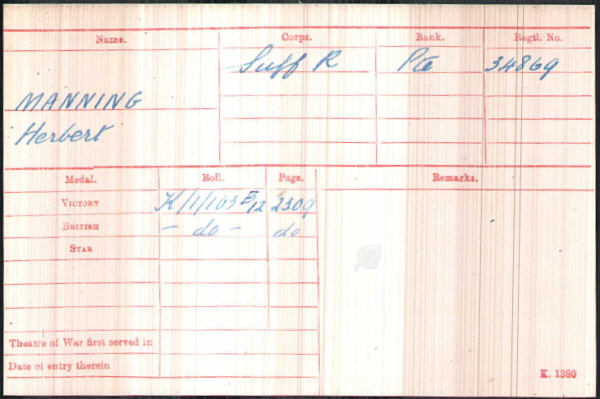 Name. Corps. Rank. Regtl. No.
Suff R Pte 34869
MANNING
Herbert
Medal. Roll. Page. Remarks.
VICTORY K/1/103 B12 2309
BRITISH - do - do
STAR
Theatre of War first served in
Date of entry therein
K. 1380